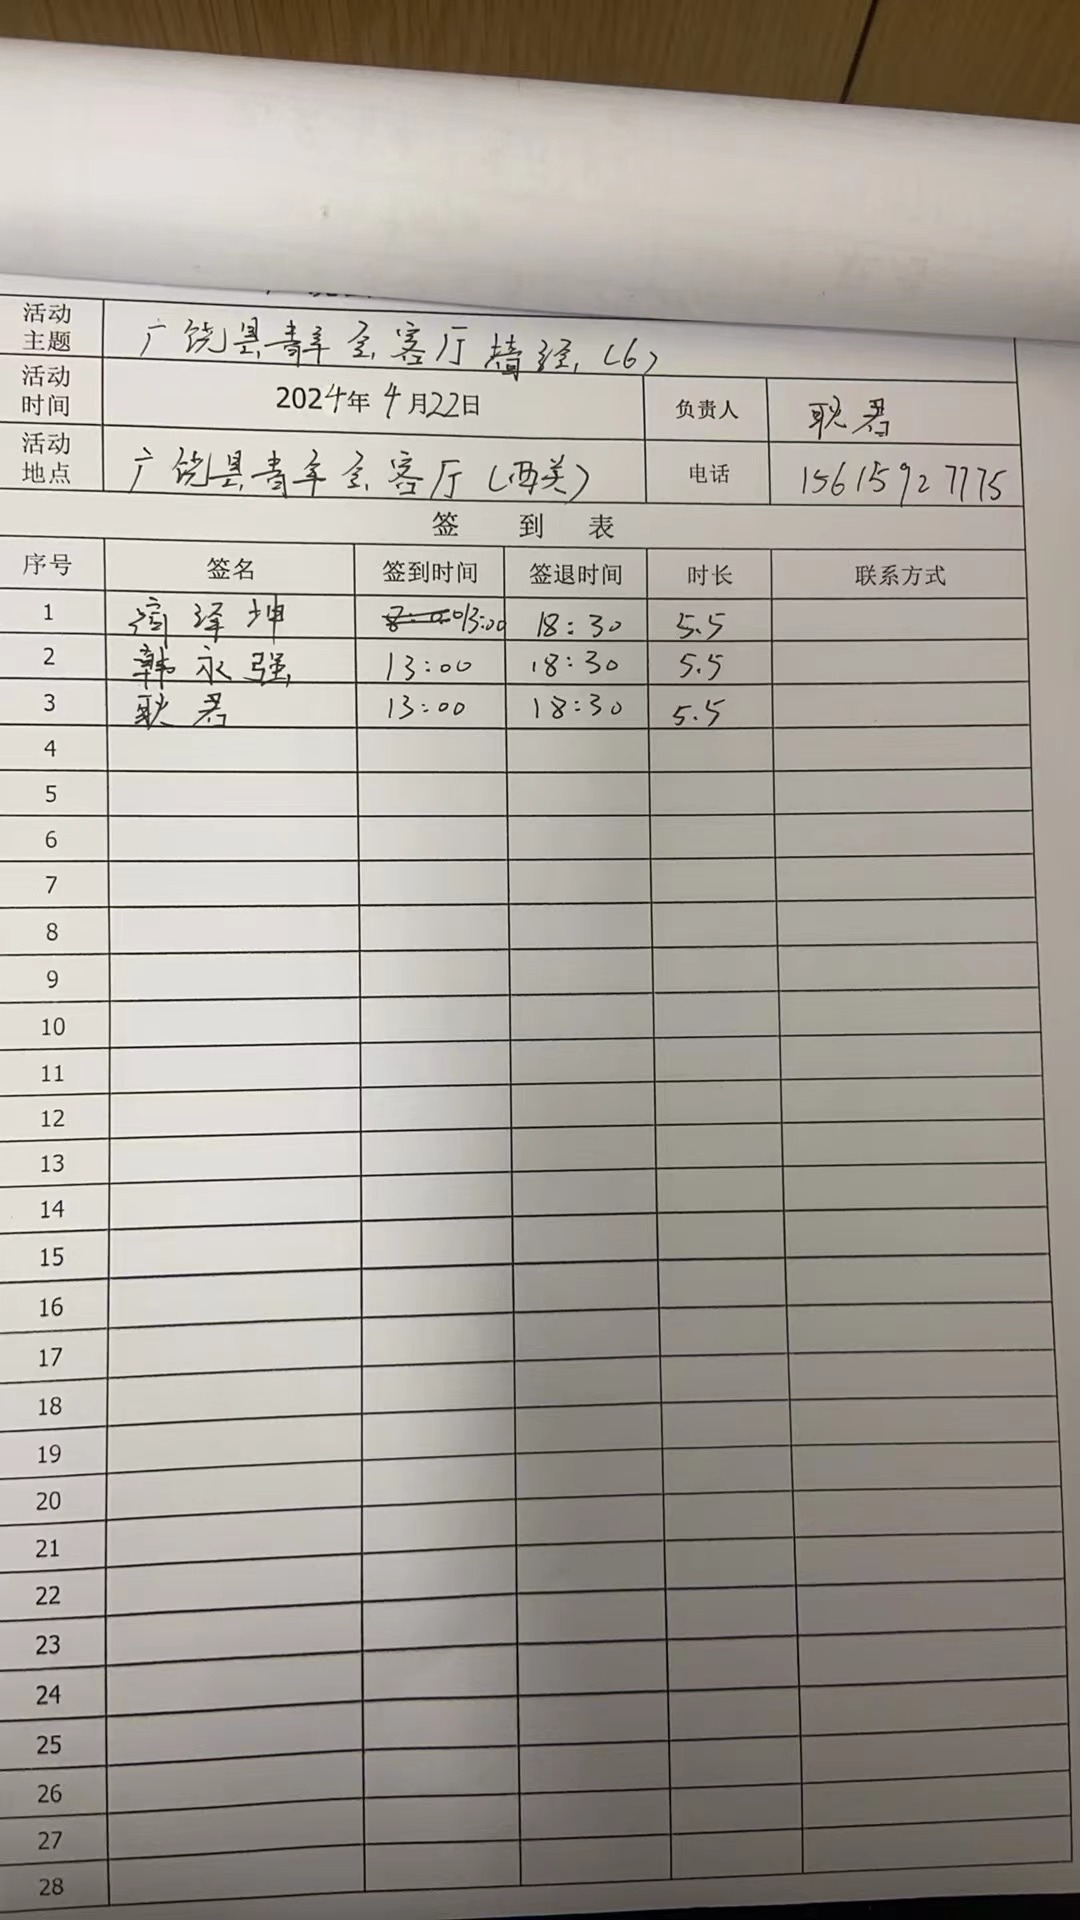 活动主题 广饶县青年会客厅墙绘(6)
活动时间 2024年4月22日 负责人 耿君
活动地点 广饶县青年会客厅(西关) 电话 15615927775
签 到 表
序号 签名 签到时间 签退时间 时长 联系方式
1 泽坤 13:00 18:30 5.5
2 韩永强 13:00 18:30 5.5
3 耿君 13:00 18:30 5.5
4
5
6
7
8
9
10
11
12
13
14
15
16
17
18
19
20
21
22
23
24
25
26
27
28